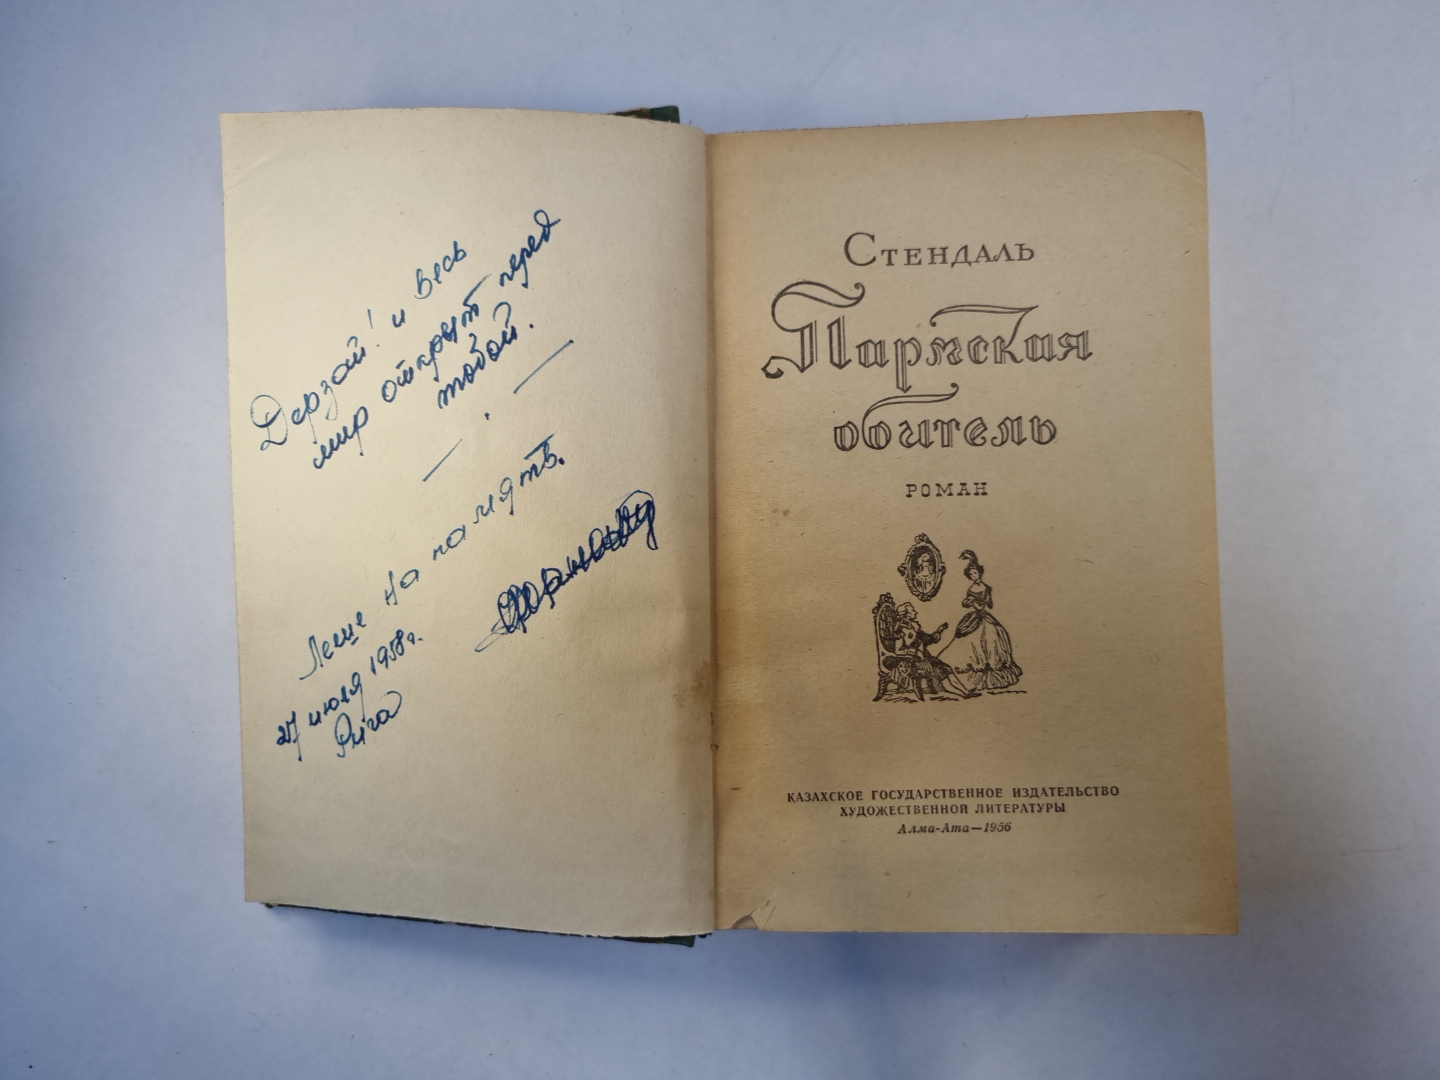 Дерзай! и весь
мир открыт перед
тобой.
Леше на память.
27 июля 1958 г.
Рига
Стендаль
Пармская
обитель
РОМАН
КАЗАХСКОЕ ГОСУДАРСТВЕННОЕ ИЗДАТЕЛЬСТВО
ХУДОЖЕСТВЕННОЙ ЛИТЕРАТУРЫ
Алма-Ата—1956